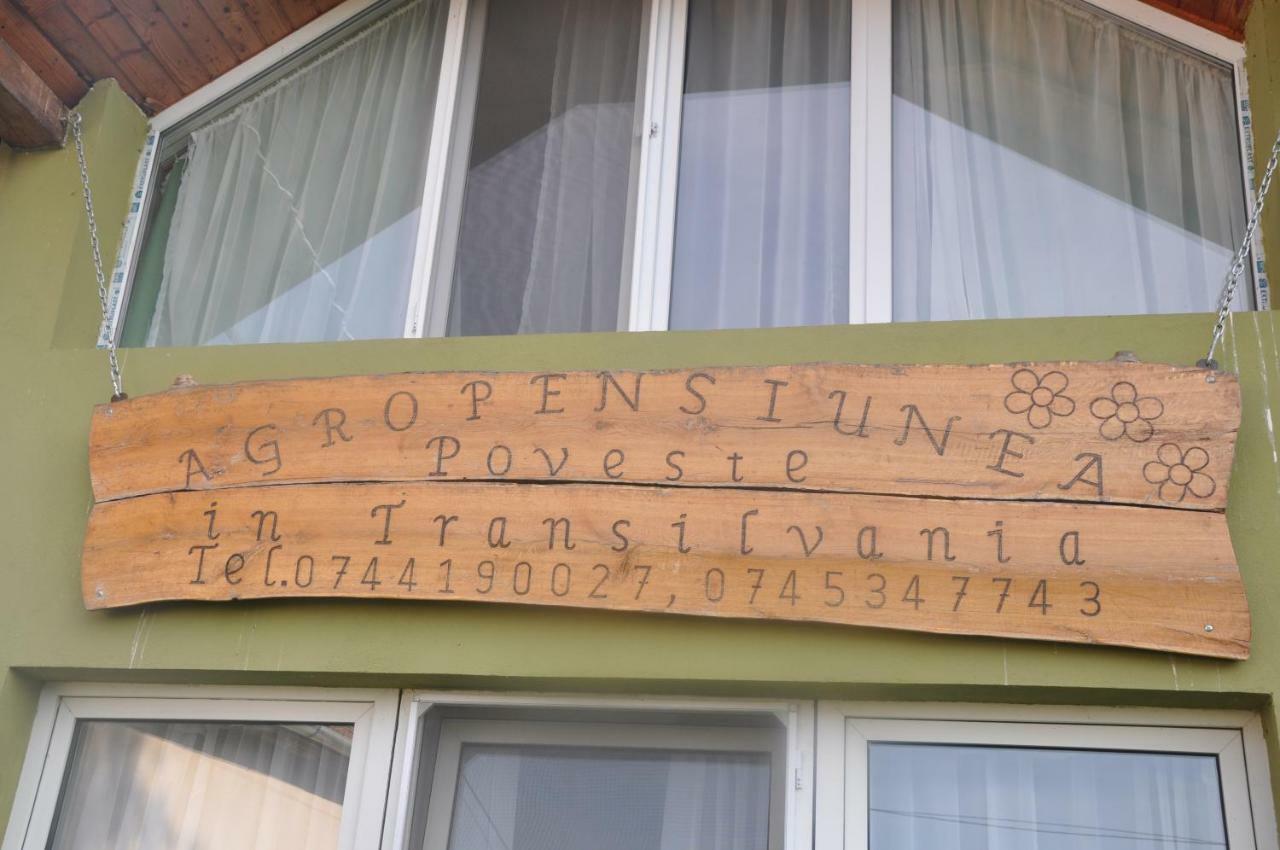 AGROPENSIUNEA
Poveste
in Transilvania
Tel.0744190027, 0745347743